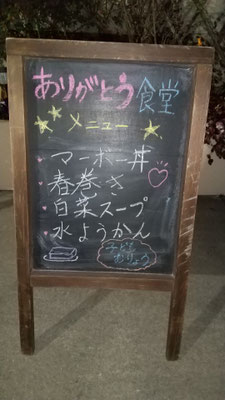 ありがとう食堂
メニュー
マーボー丼
春巻き
白菜スープ
水ようかん
子ども
むりょう